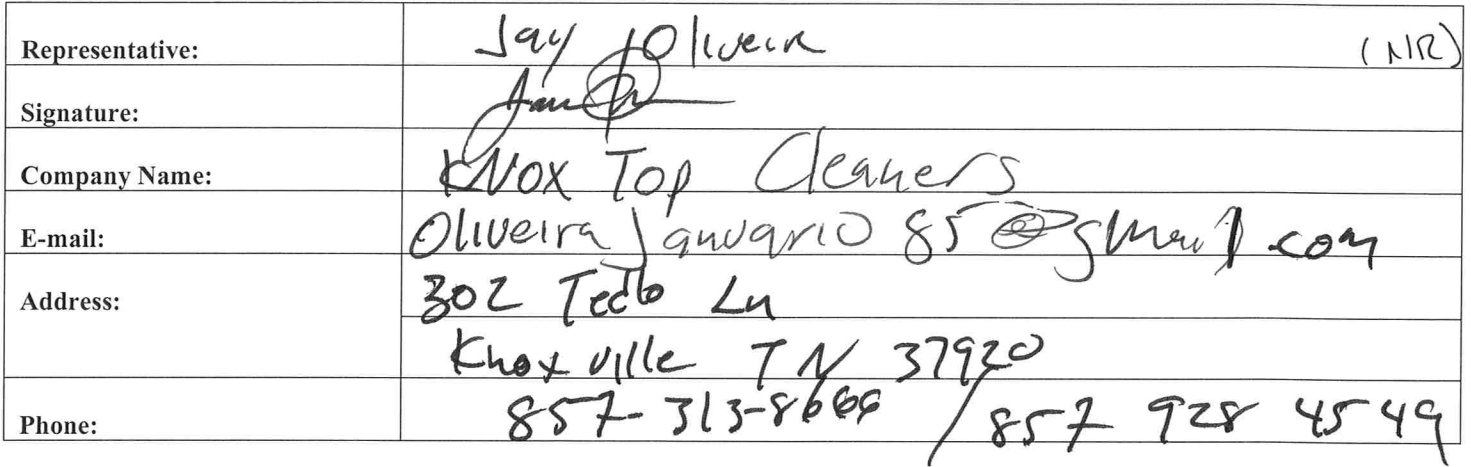 Representative: Jay Oliveira (NR)
Signature:
Company Name: KNox Top Cleaners
E-mail: Oliveira Januario 85 @gmail.com
Address: 302 Tedlo Ln
Knoxville TN 37920
Phone: 857-313-8666 / 857 928 4549